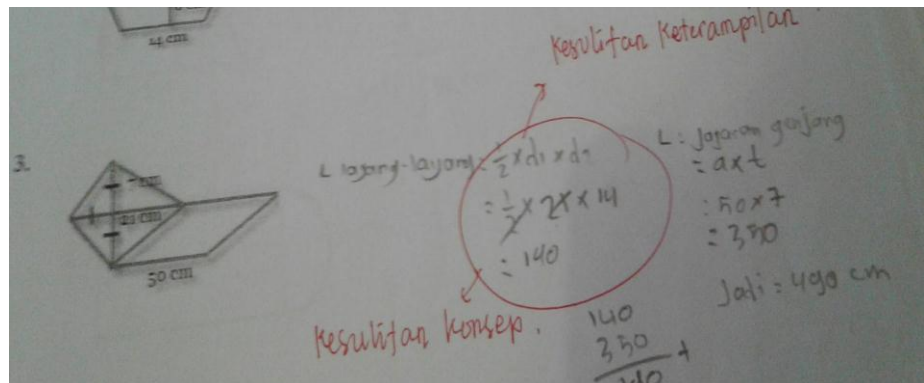 14 cm
Kesulitan Keterampilan
3.
7 cm
21 cm
50 cm
L layang-layang = 1/2 x d1 x d2
= 1/2 x 2x x 14
= 140
L : jajaran genjang
= a x t
: 50 x 7
= 350
Jadi = 490 cm
Kesulitan Konsep.
140
350 +